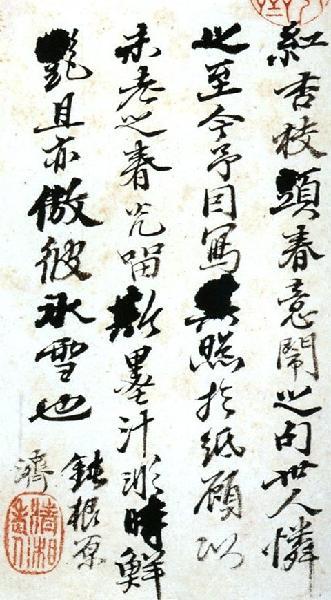 紅杏枝頭春意鬧之句世人憐
之至今予因寫其照於紙願以
未老之春光留墨汁時鮮
艷且亦傲彼冰雪也
鈍根原
濟
清湘老人